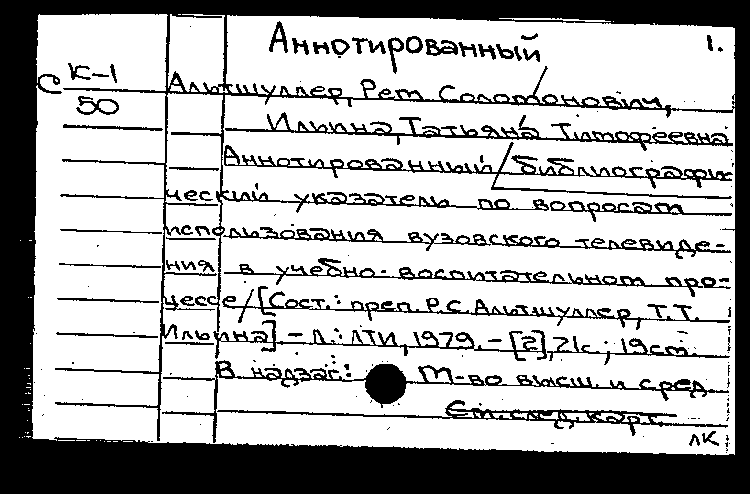 Аннотированный 1.
С К-1
50
Альтшуллер, Рем Соломонович,
Ильина, Татьяна Тимофеевна
Аннотированный библиографи-
ческий указатель по вопросам
использования вузовского телевиде-
ния в учебно-воспитательном про-
цессе / [Сост.: преп. Р.С. Альтшуллер, Т.Т.
Ильина]. – Л.: ЛТИ, 1979. – [2], 21с.; 19см.
В надзаг.: М-во высш. и сред.
См. след. карт.
лк